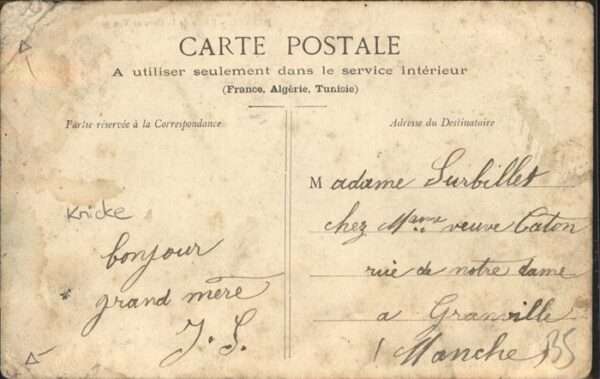 CARTE POSTALE
A utiliser seulement dans le service intérieur
(France, Algérie, Tunisie)
Partie réservée à la Correspondance
Adresse du Destinataire
Knicke
bonjour
grand mère
J. S.
Madame Surbillet
chez Mme veuve Caton
rue de notre dame
a Granville
Manche